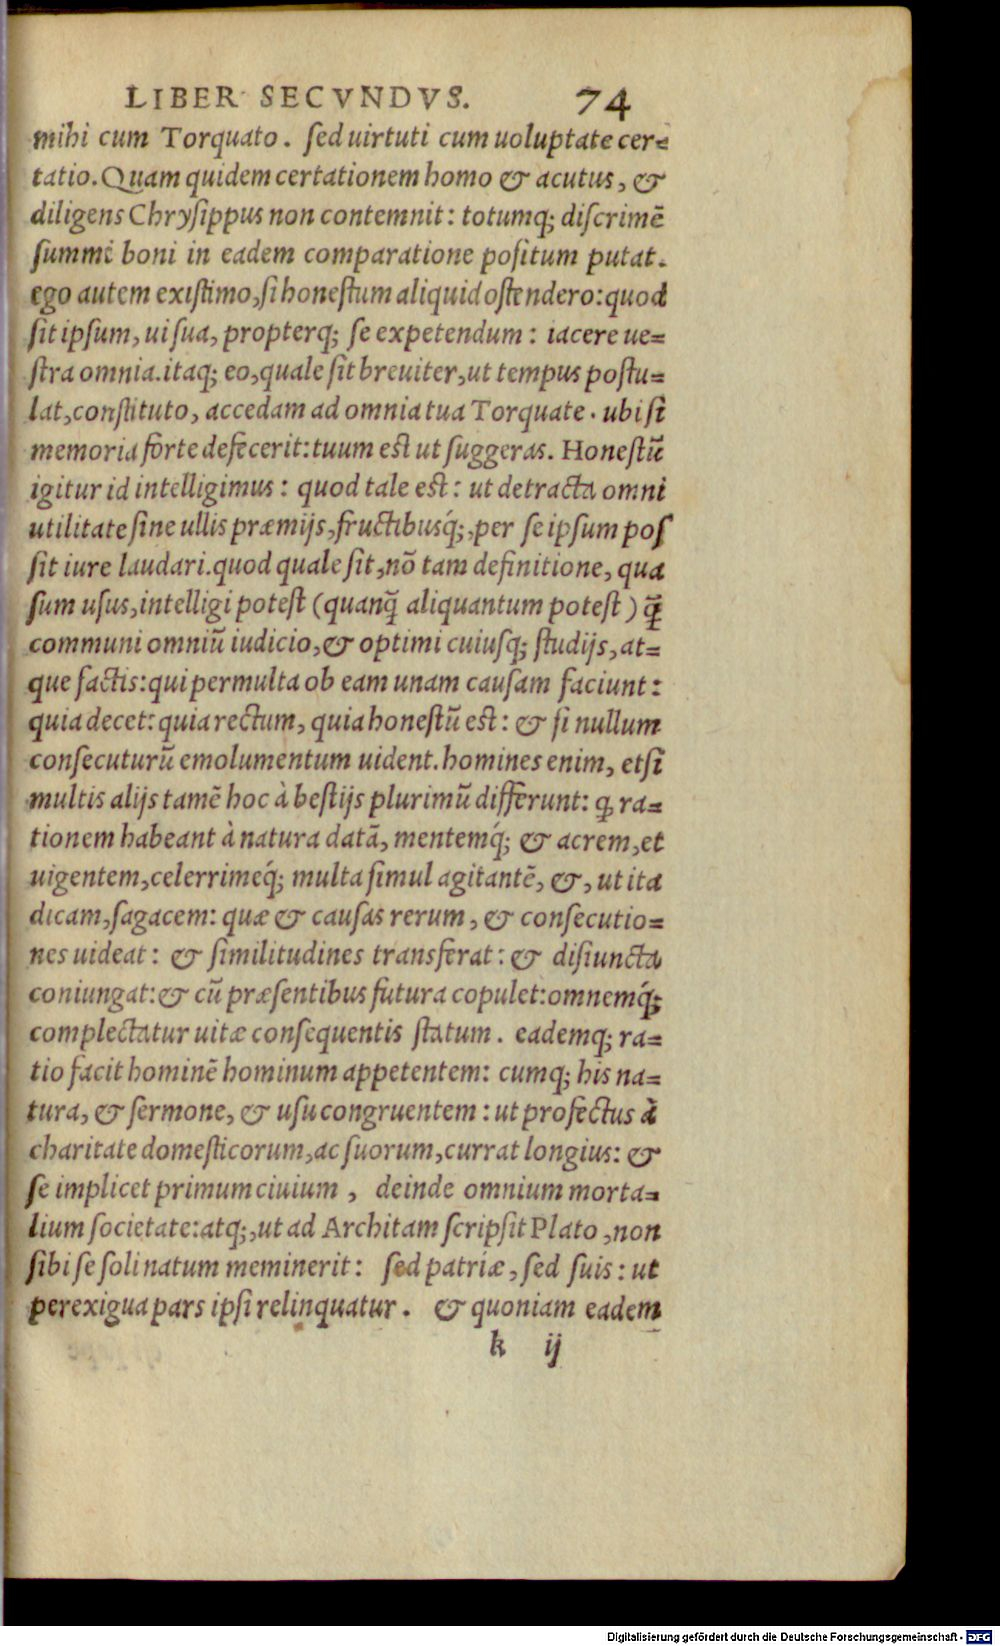 LIBER SECVNDVS. 74
mihi cum Torquato. ſed uirtuti cum uoluptate cer-
tatio. Quam quidem certationem homo & acutus, &
diligens Chryſippus non contemnit: totumq; diſcrimẽ
ſummi boni in eadem comparatione poſitum putat.
ego autem exiſtimo, ſi honeſtum aliquid oſtendero: quod
ſit ipſum, ui ſua, propterq; ſe expetendum: iacere ue-
ſtra omnia. itaq; eo, quale ſit breuiter, ut tempus poſtu-
lat, conſtituto, accedam ad omnia tua Torquate. ubi ſi
memoria forte defecerit: tuum eſt ut ſuggeras. Honeſtũ
igitur id intelligimus: quod tale eſt: ut detracta omni
utilitate ſine ullis præmijs, fructibusq́;, per ſe ipſum poſ
ſit iure laudari. quod quale ſit, nõ tam definitione, qua
ſum uſus, intelligi poteſt (quanq̃ aliquantum poteſt) q̃
communi omniũ iudicio, & optimi cuiuſq; ſtudijs, at-
que factis: qui permulta ob eam unam cauſam faciunt:
quia decet: quia rectum, quia honeſtũ eſt: & ſi nullum
conſecuturũ emolumentum uident. homines enim, etſi
multis alijs tamẽ hoc à beſtijs plurimũ differunt: ꝙ ra-
tionem habeant à natura datã, mentemq́; & acrem, et
uigentem, celerrimeq́; multa ſimul agitantẽ, &, ut ita
dicam, ſagacem: quæ & cauſas rerum, & conſecutio-
nes uideat: & ſimilitudines transferat: & diſiuncta
coniungat: & cũ præſentibus futura copulet: omnemq́;
complectatur uitæ conſequentis ſtatum. eademq; ra-
tio facit hominẽ hominum appetentem: cumq; his na-
tura, & ſermone, & uſu congruentem: ut profectus à
charitate domeſticorum, ac ſuorum, currat longius: &
ſe implicet primum ciuium, deinde omnium morta-
lium ſocietate: atq;, ut ad Architam ſcripſit Plato, non
ſibi ſe ſoli natum meminerit: ſed patriæ, ſed ſuis: ut
perexigua pars ipſi relinquatur. & quoniam eadem
k ij
Digitalisierung gefördert durch die Deutsche Forschungsgemeinschaft - DFG